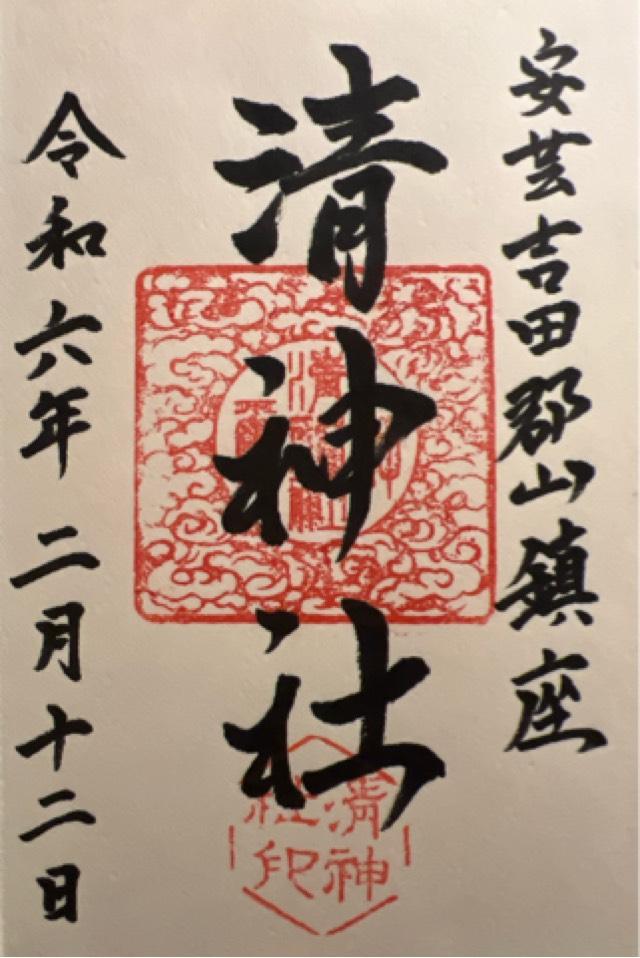 安芸吉田郡山鎮座
清神社
令和六年二月十二日
清神
社印